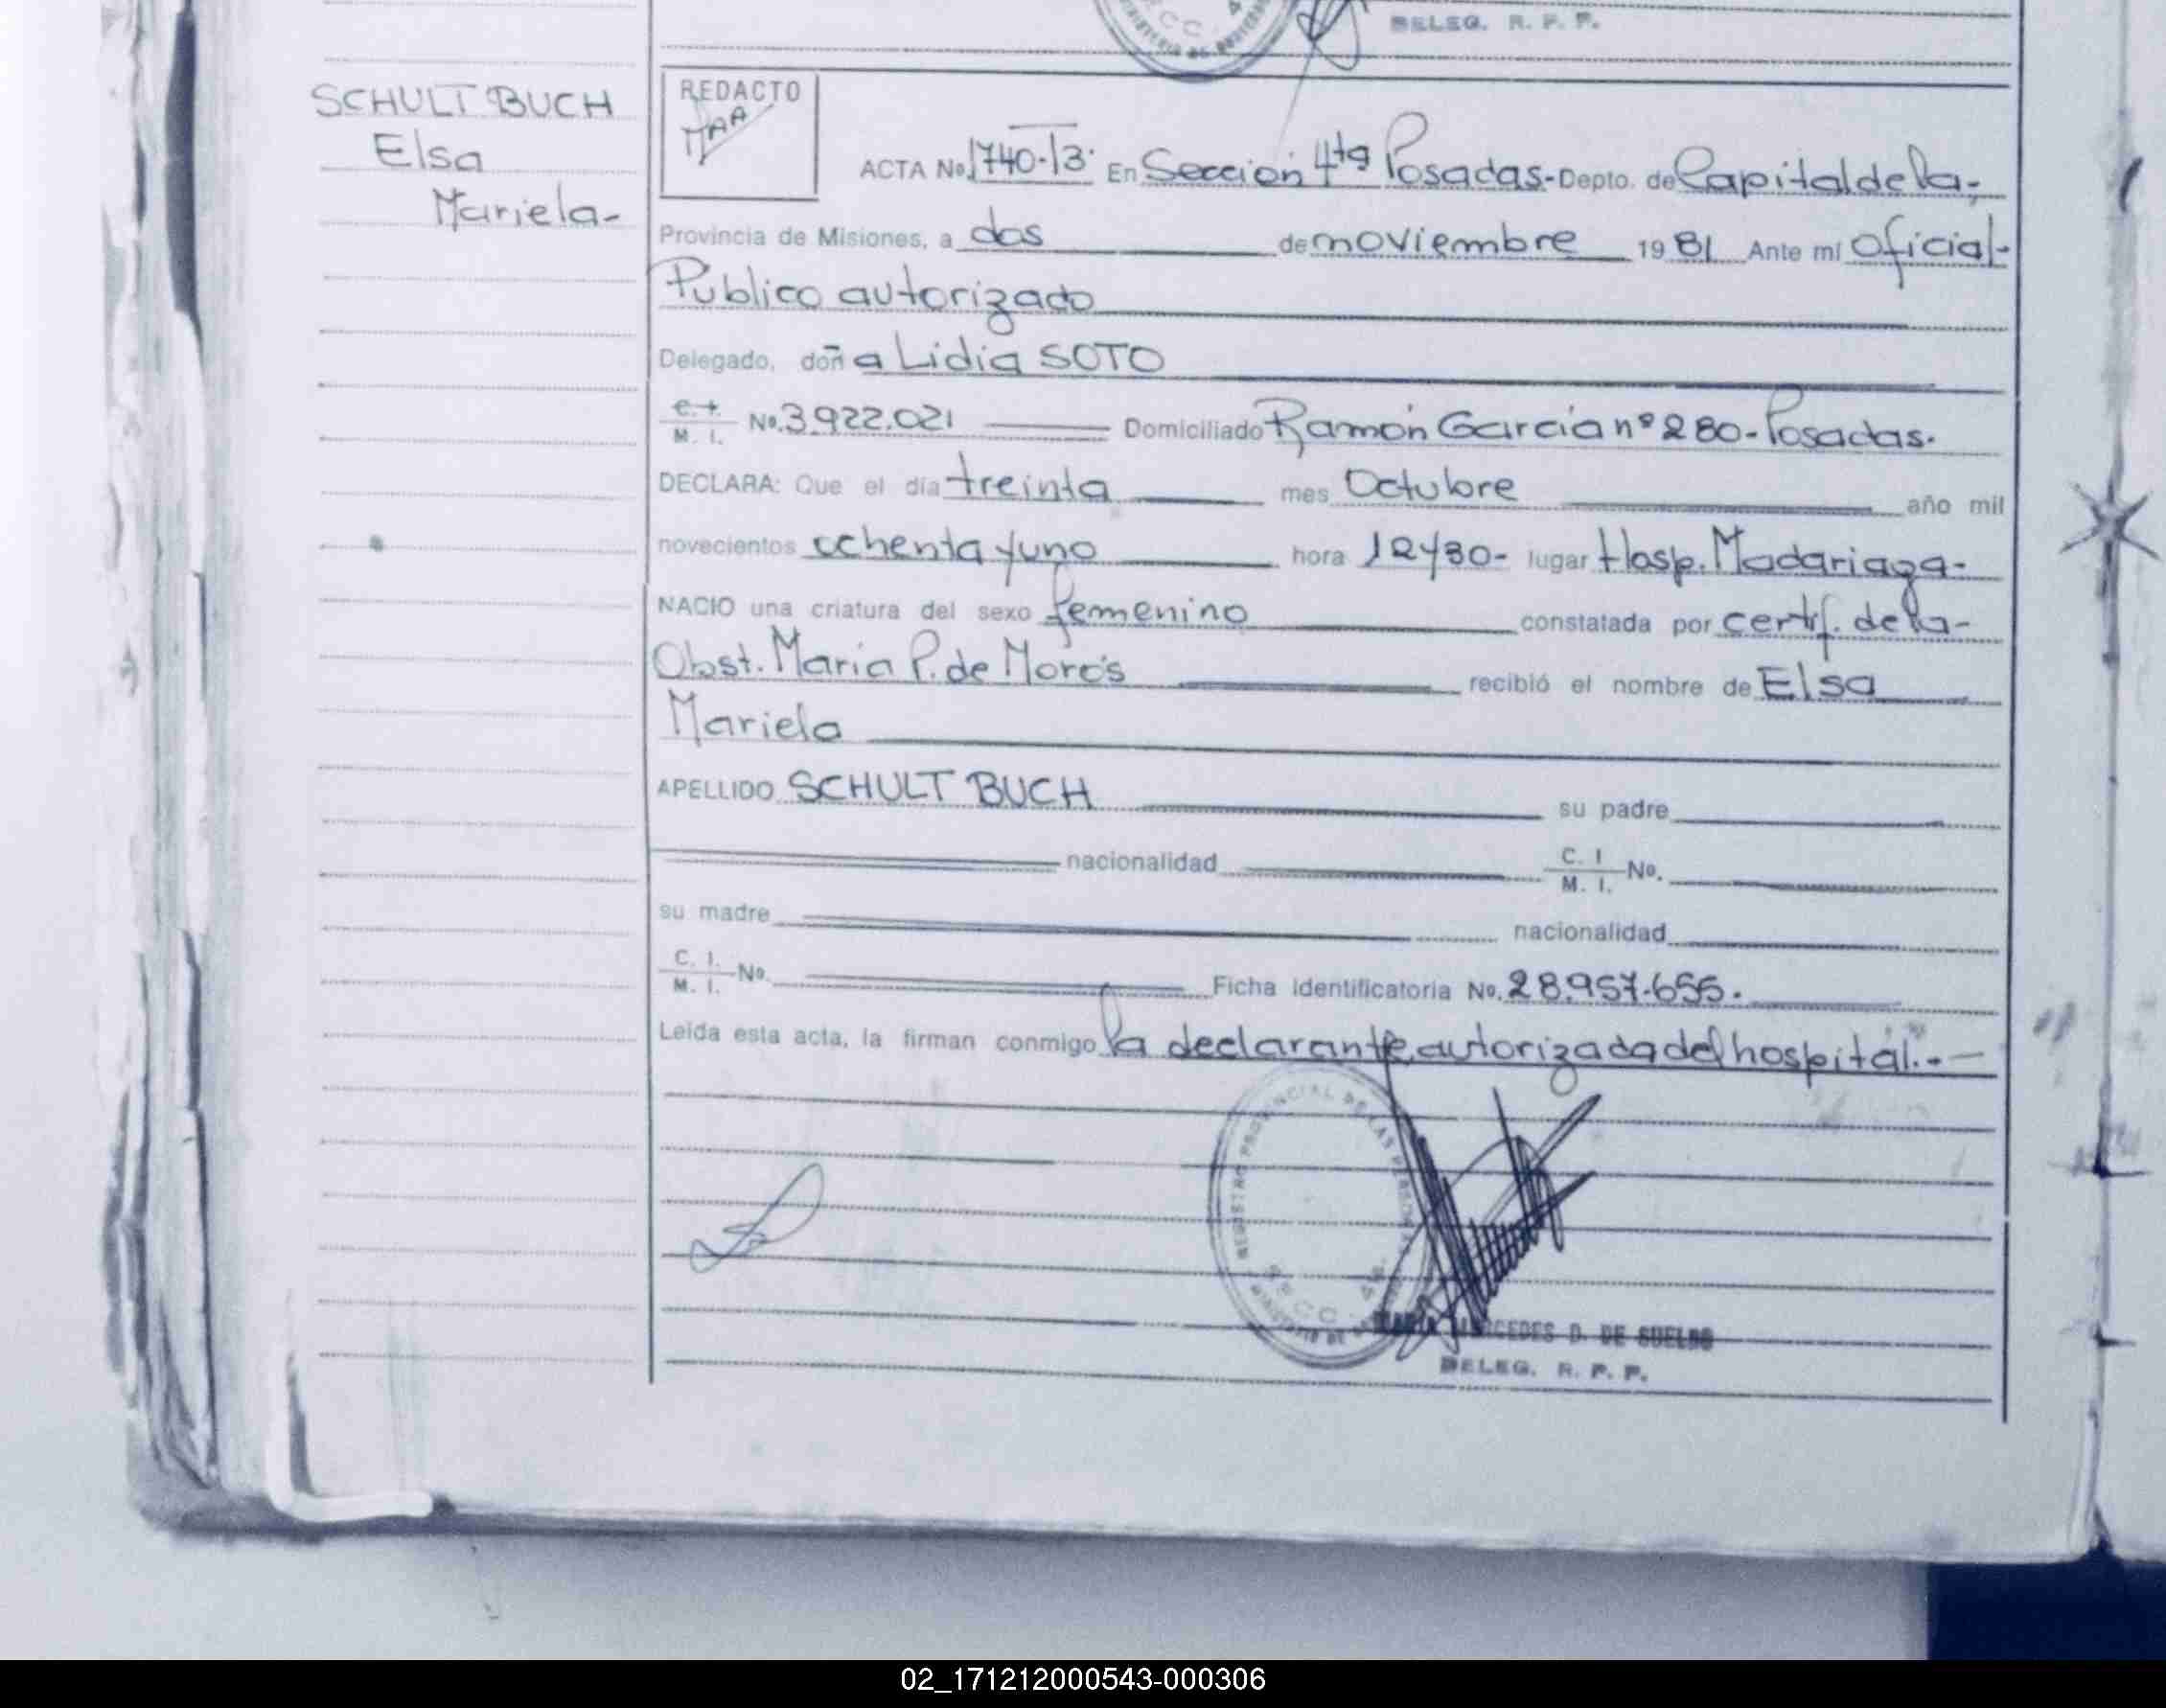 DELEG. R. P. P.
SCHULT BUCH
Elsa
Mariela-
REDACTO
MAA
ACTA No. 1740-13· En Sección 4ta Posadas- Depto. de Capital de la-
Provincia de Misiones, a dos de noviembre 1981 Ante mí Oficial-
Público autorizado
Delegado, doña Lidia SOTO
M. I. No. 3.922.021 Domiciliado Ramón García nº 280-Posadas.
DECLARA: Que el día treinta mes Octubre año mil
novecientos ochenta y uno hora 12y30- lugar Hosp. Madariaga-
NACIO una criatura del sexo femenino constatada por certif. de la-
Obst. María P. de recibió el nombre de Elsa
Mariela
APELLIDO SCHULT BUCH su padre
nacionalidad C. I. M. I. No.
su madre nacionalidad
C. I. M. I. No. Ficha Identificatoria No. 28.957.655.
Leída esta acta, la firman conmigo la declarante, autorizada del hospital.-
REGISTRO PROVINCIAL DE LAS PERSONAS
MERCEDES D. DE SUELDO
DELEG. R. P. P.
02_171212000543-000306